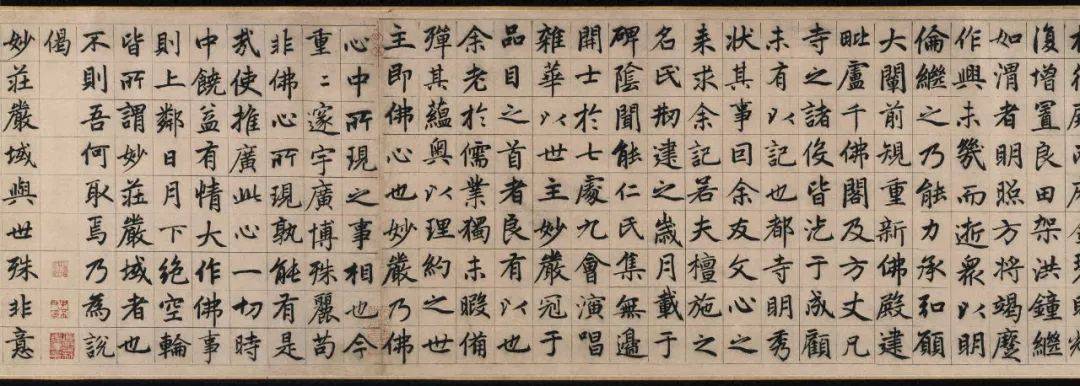 復增置良田架洪鐘繼
如渭者明照方將竭麼
作興未幾而逝衆以明
倫繼之乃能力承和願
大闡前規重新佛殿建
毗盧千佛閣及方丈凡
寺之諸役皆汔于成顧
未有以記也都寺明秀
狀其事囙余友文心之
来求余記若夫檀施之
名氏刱建之歲月載于
碑陰聞能仁氏集無邊
開士於七處九會演唱
雜華以世主妙嚴冠于
品目之首者良有以也
余老於儒業獨未暇備
殫其蘊奥以理約之世
主即佛心也妙嚴乃佛
心中所現之事相也今
重〻邃宇廣博殊麗苟
非佛心所現孰能有是
哉使推廣此心一切時
中饒益有情大作佛事
則上鄰日月下絶空輪
皆所謂妙莊嚴域者也
不則吾何取焉乃為說
偈
妙莊嚴域與世殊非意